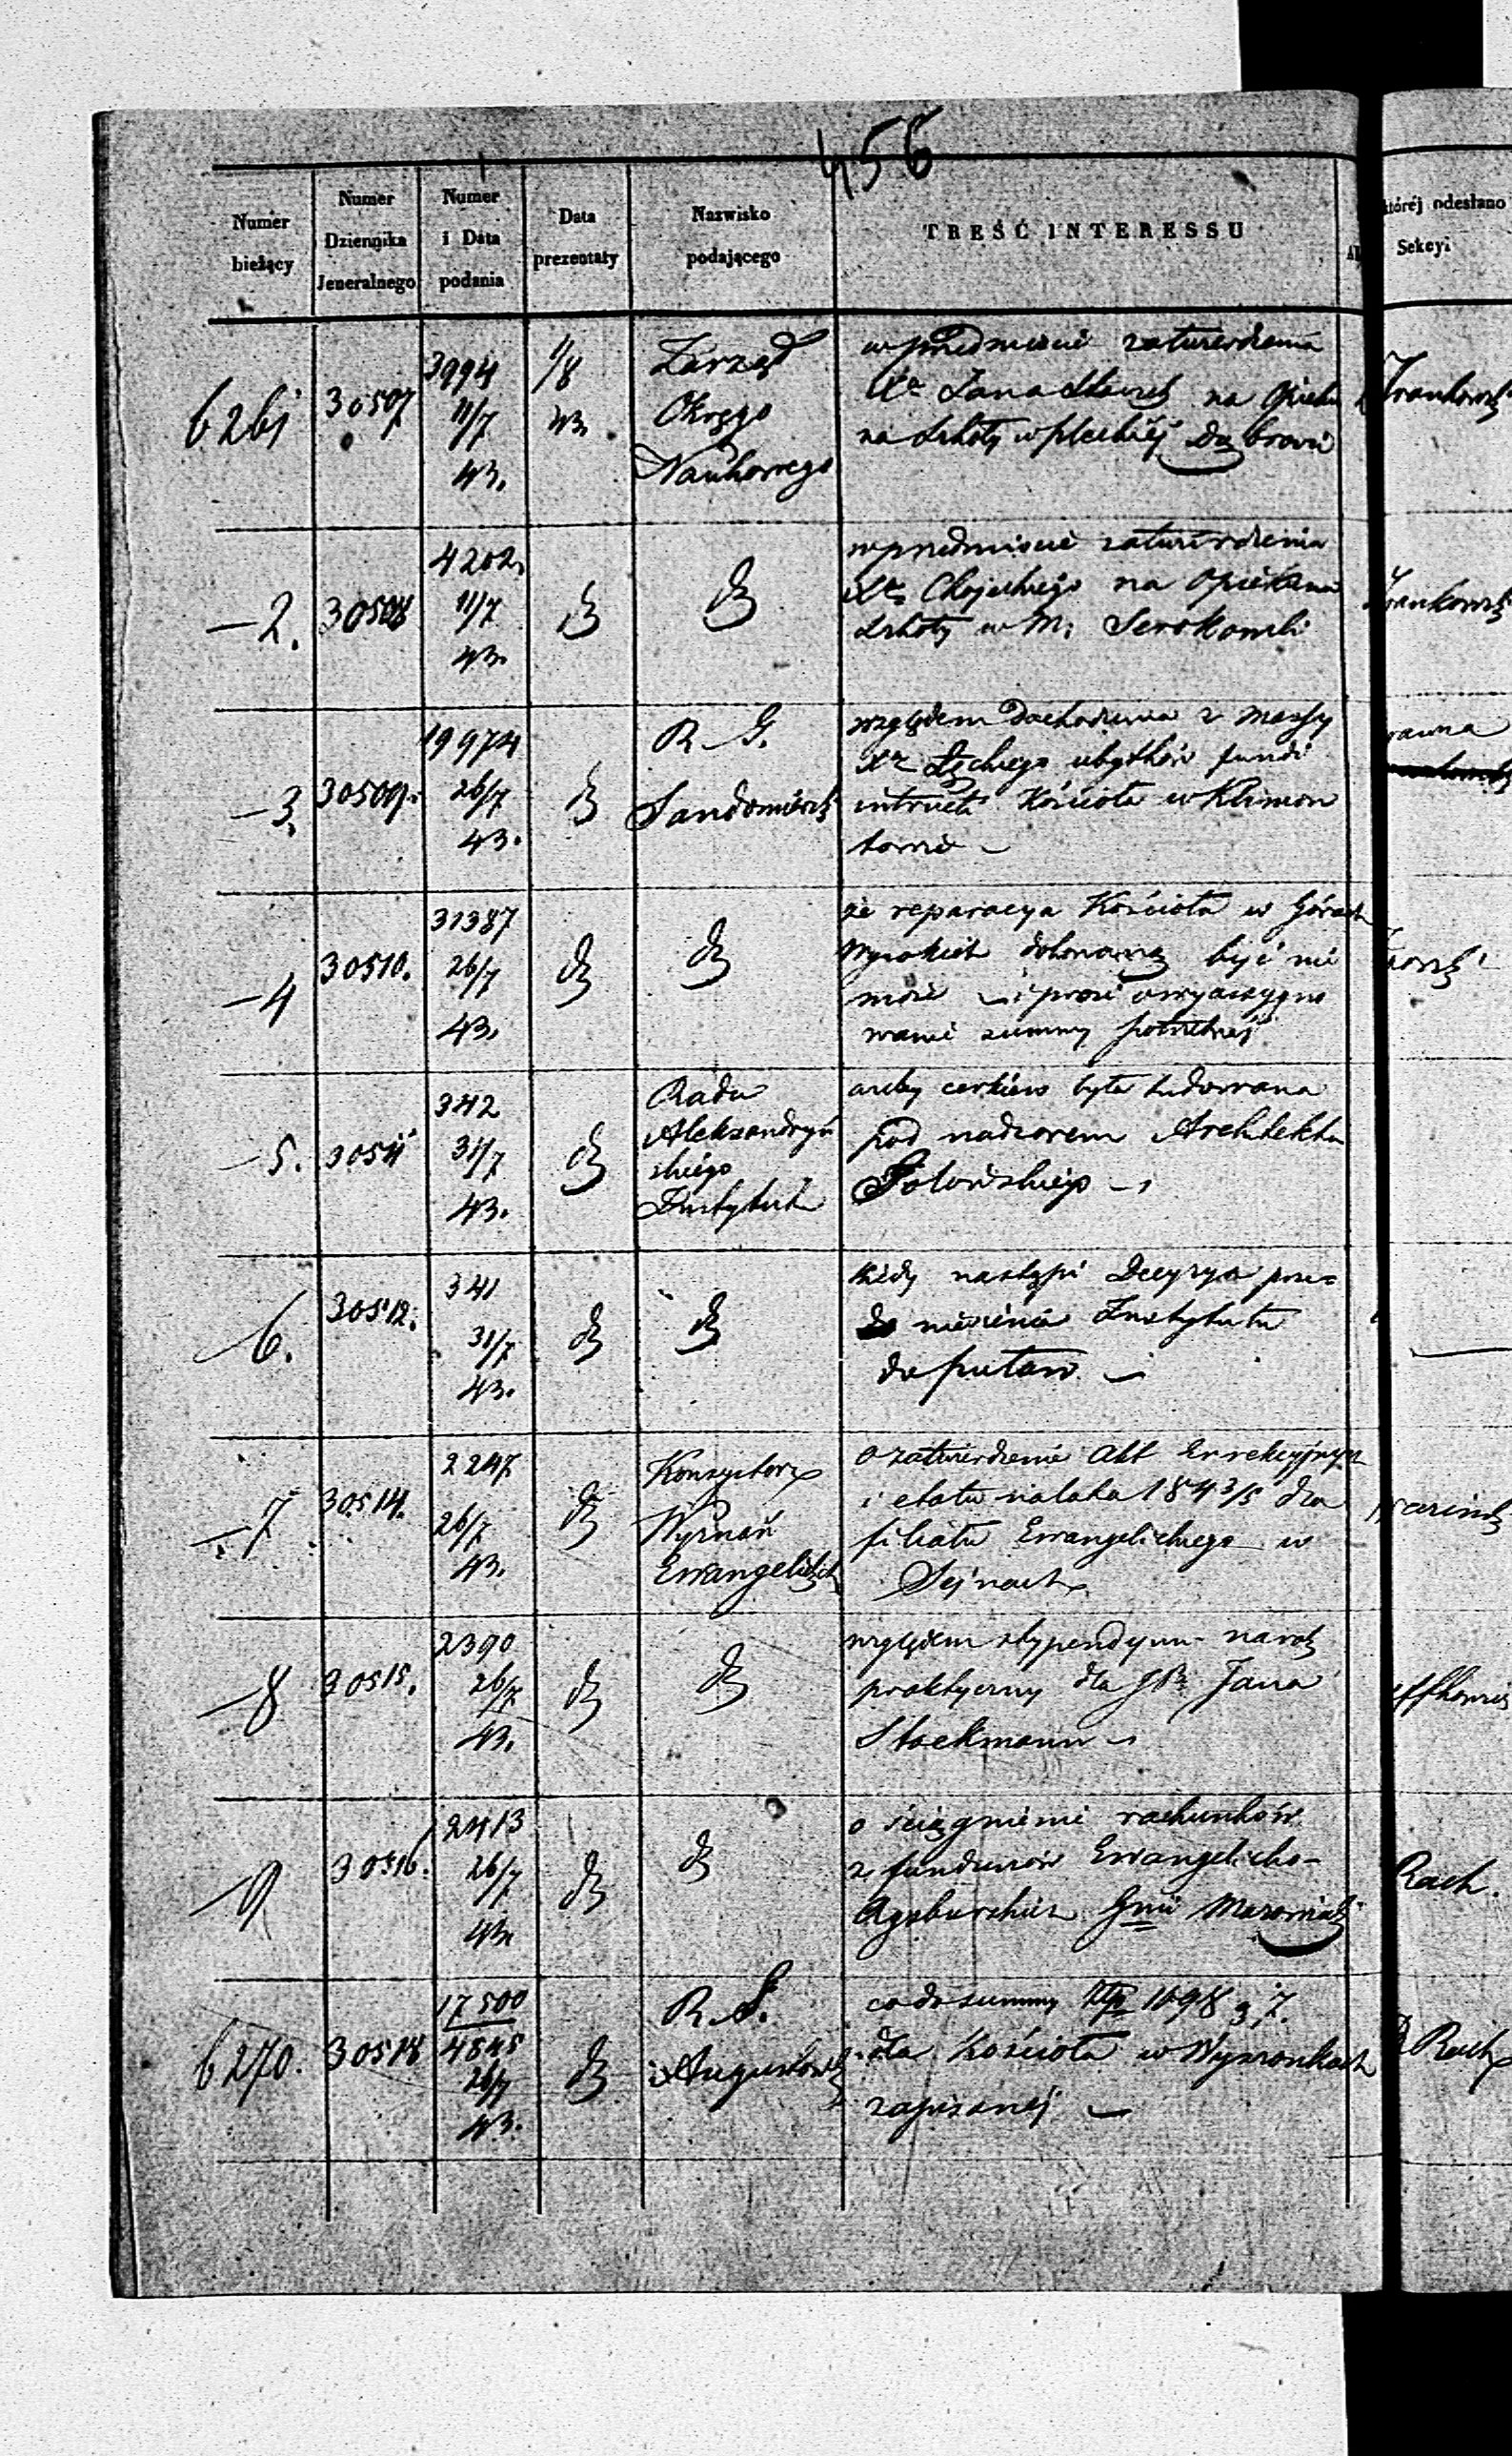 456
Numer bieżący
Numer Dziennika Jeneralnego
Numer i Data podania
Data prezentaty
Nazwisko podającego
TREŚĆ INTERESSU
której odesłano
Sekcyi
6261
30507
3994
11/7
43.
1/8
43.
Zarząd
Okręgo
Naukowego
w przedmiocie zatwierdzenia
Xa Jana na Opieku
na Szkoły w płockiej Dąbrowie
—2.
30508
4202.
11/7
43.
do
do
w przedmiocie zatwierdzenia
Xa Chojeckiego na Opiekuna
Szkoły w M. Serokomli
—3.
30509.
19974
26/7
43.
do
R. G.
Sandomirski
względem dochodzenia z massy
Xa Łęckiego ubytków fundi
instructi Kościoła w Klimon
towie —
—4
30510.
31387
26/7
43.
do
do
że reparacya Kościoła w Górach
Wysokich dokonaną być nie
może — i prosi o wyassygno
wanie summy potrzebnej
—5.
30511
342
31/7
43.
do
Rada
Alexandryń
skiego
Instytutu
ażeby cerkiew była budowana
pod nadzorem Architekta
—6.
30512.
341
31/7
43.
do
do
kiedy nastąpi Decyzya prze=
niesienia Instytutu
do puław. —
—7
30514.
2247
26/7
43.
do
Konsystorz
Wyznań
Ewangelickich
o zatwierdzenie Akt Errekcyjnych
i etatu na lata 1843/5 dla
filiału Ewangelickiego w
Sejnach
—8
30515.
2390
26/7
43.
do
do
względem stypendyum na rok
praktyczny dla JPa Jana
Stockmann —
—9
30516.
2413
26/7
43.
do
do
o ściągnienie rachunków
z funduszów Ewangelicko-
Agsburskich Gnii Mazowieck
Rach.
6270.
30518
17500
4545
26/7
43.
do
R. G.
Augustowski
co do summy Złp 1098 g 7.
dla Kościoła w Wyszonkach
zapisanej —
Rach